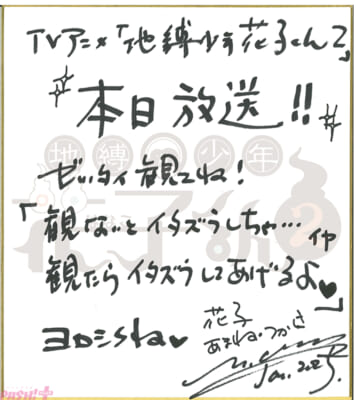 TVアニメ「地縛少年花子くん2」
本日放送!!
地縛少年
花子くん2
ゼッタイ観てね!
「観ないとイタズラしちゃ…イヤ
観たらイタズラしてあげるよ♥」
ヨロシクね♥
花子
あまね・つかさ
Jan. 2025.
PASH!+